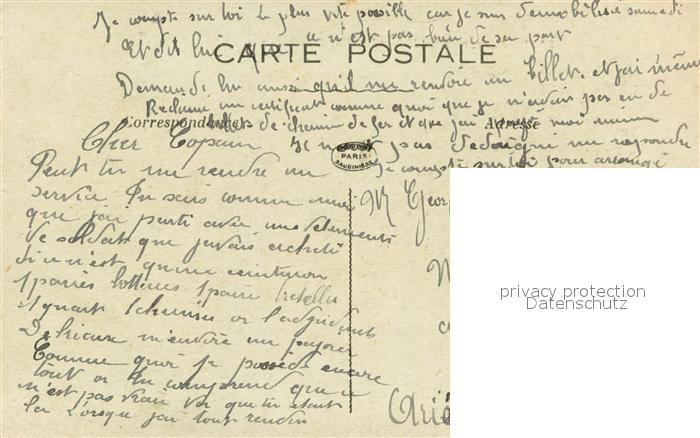 Je compte sur toi le plus vite possible car je suis démobilisé samedi
Et dit lui que ce n'est pas bien de sa part
CARTE POSTALE
Demande lui aussi qu'il me rendre un billet et j'ai même
Reclame un certificat comme quoi que je n'avais pas eu de
Correspondance
billets de chemin de fer et que j'ai moi même
Adresse
Cher Copain
Je pas me repondre
PARIS
Je compte sur toi pour arrangé
Peut tu me rendre un
service. Tu sais comme moi
que j'ai parti avec mes vetements
de soldat que j'avais acheté
si ce n'est qu'une ceinturon
1 paires bottines 1 paire bretelles
1 quart 1 chemises or l'adjudant
m'envoie un papier
Comme quoi je possède encore
tout or tu comprend que ce
n'est pas vrai vu que tu étais
la lorsque j'ai tout rendu
Mr Geor
Arié
privacy protection
Datenschutz